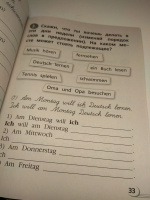 Скажи, что ты хочешь делать в
эти дни недели (измени порядок
слов в предложении). На каком ме-
сте может стоять подлежащее?
Musik hören
fernsehen
Deutsch lernen
ein Buch lesen
Tennis spielen
schwimmen
Oma und Opa besuchen
Am Montag will ich Deutsch lernen.
Ich will am Montag Deutsch lernen.
1) Am Dienstag will ich
Ich will am Dienstag
2) Am Mittwoch
Ich
3) Am Donnerstag
Ich
4) Am Freitag
33